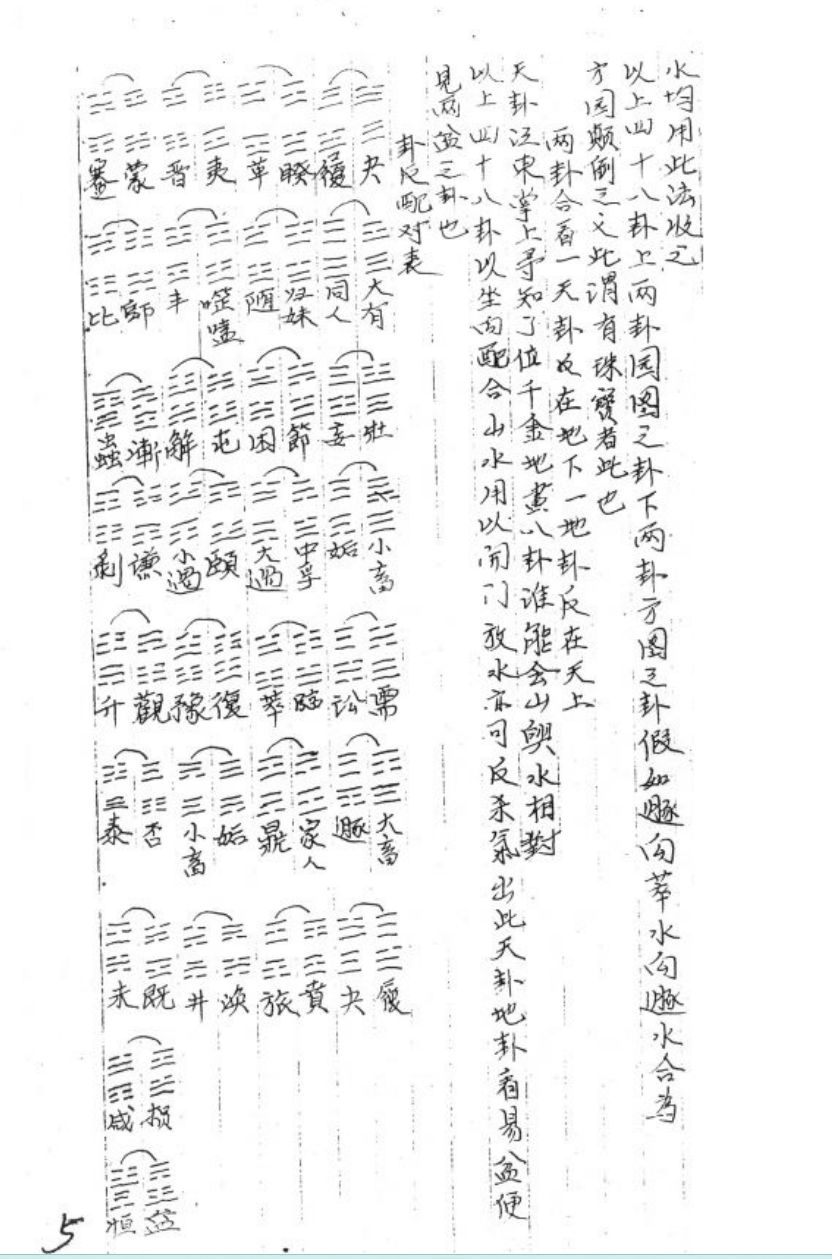 水均用此法收之
以上四十八卦上两卦园图之卦下两卦方图之卦假如遯向萃水向遯水合为
方园颠倒之义此谓有珠寳者此也
两卦合看一天卦反在地下一地卦反在天上
天卦江東掌上寻知了值千金地畫八卦谁能会山與水相對
以上四十八卦以坐向配合山水用以闭门放水亦可反杀氣出此天卦地卦看易盆便
見两盆之卦也
卦反配对表
夬 履 睽 革 夷 晋 蒙 蹇
大有 同人 归妹 随 噬嗑 丰 師 比
壯 妄 節 困 屯 解 漸 蠱
小畜 姤 中孚 大過 頤 小過 謙 剥
需 讼 臨 萃 復 豫 觀 升
大畜 遯 家人 鼎 姤 小畜 否 泰
履 夬 賁 旅 涣 井 既 未
损 咸
益 恒
5